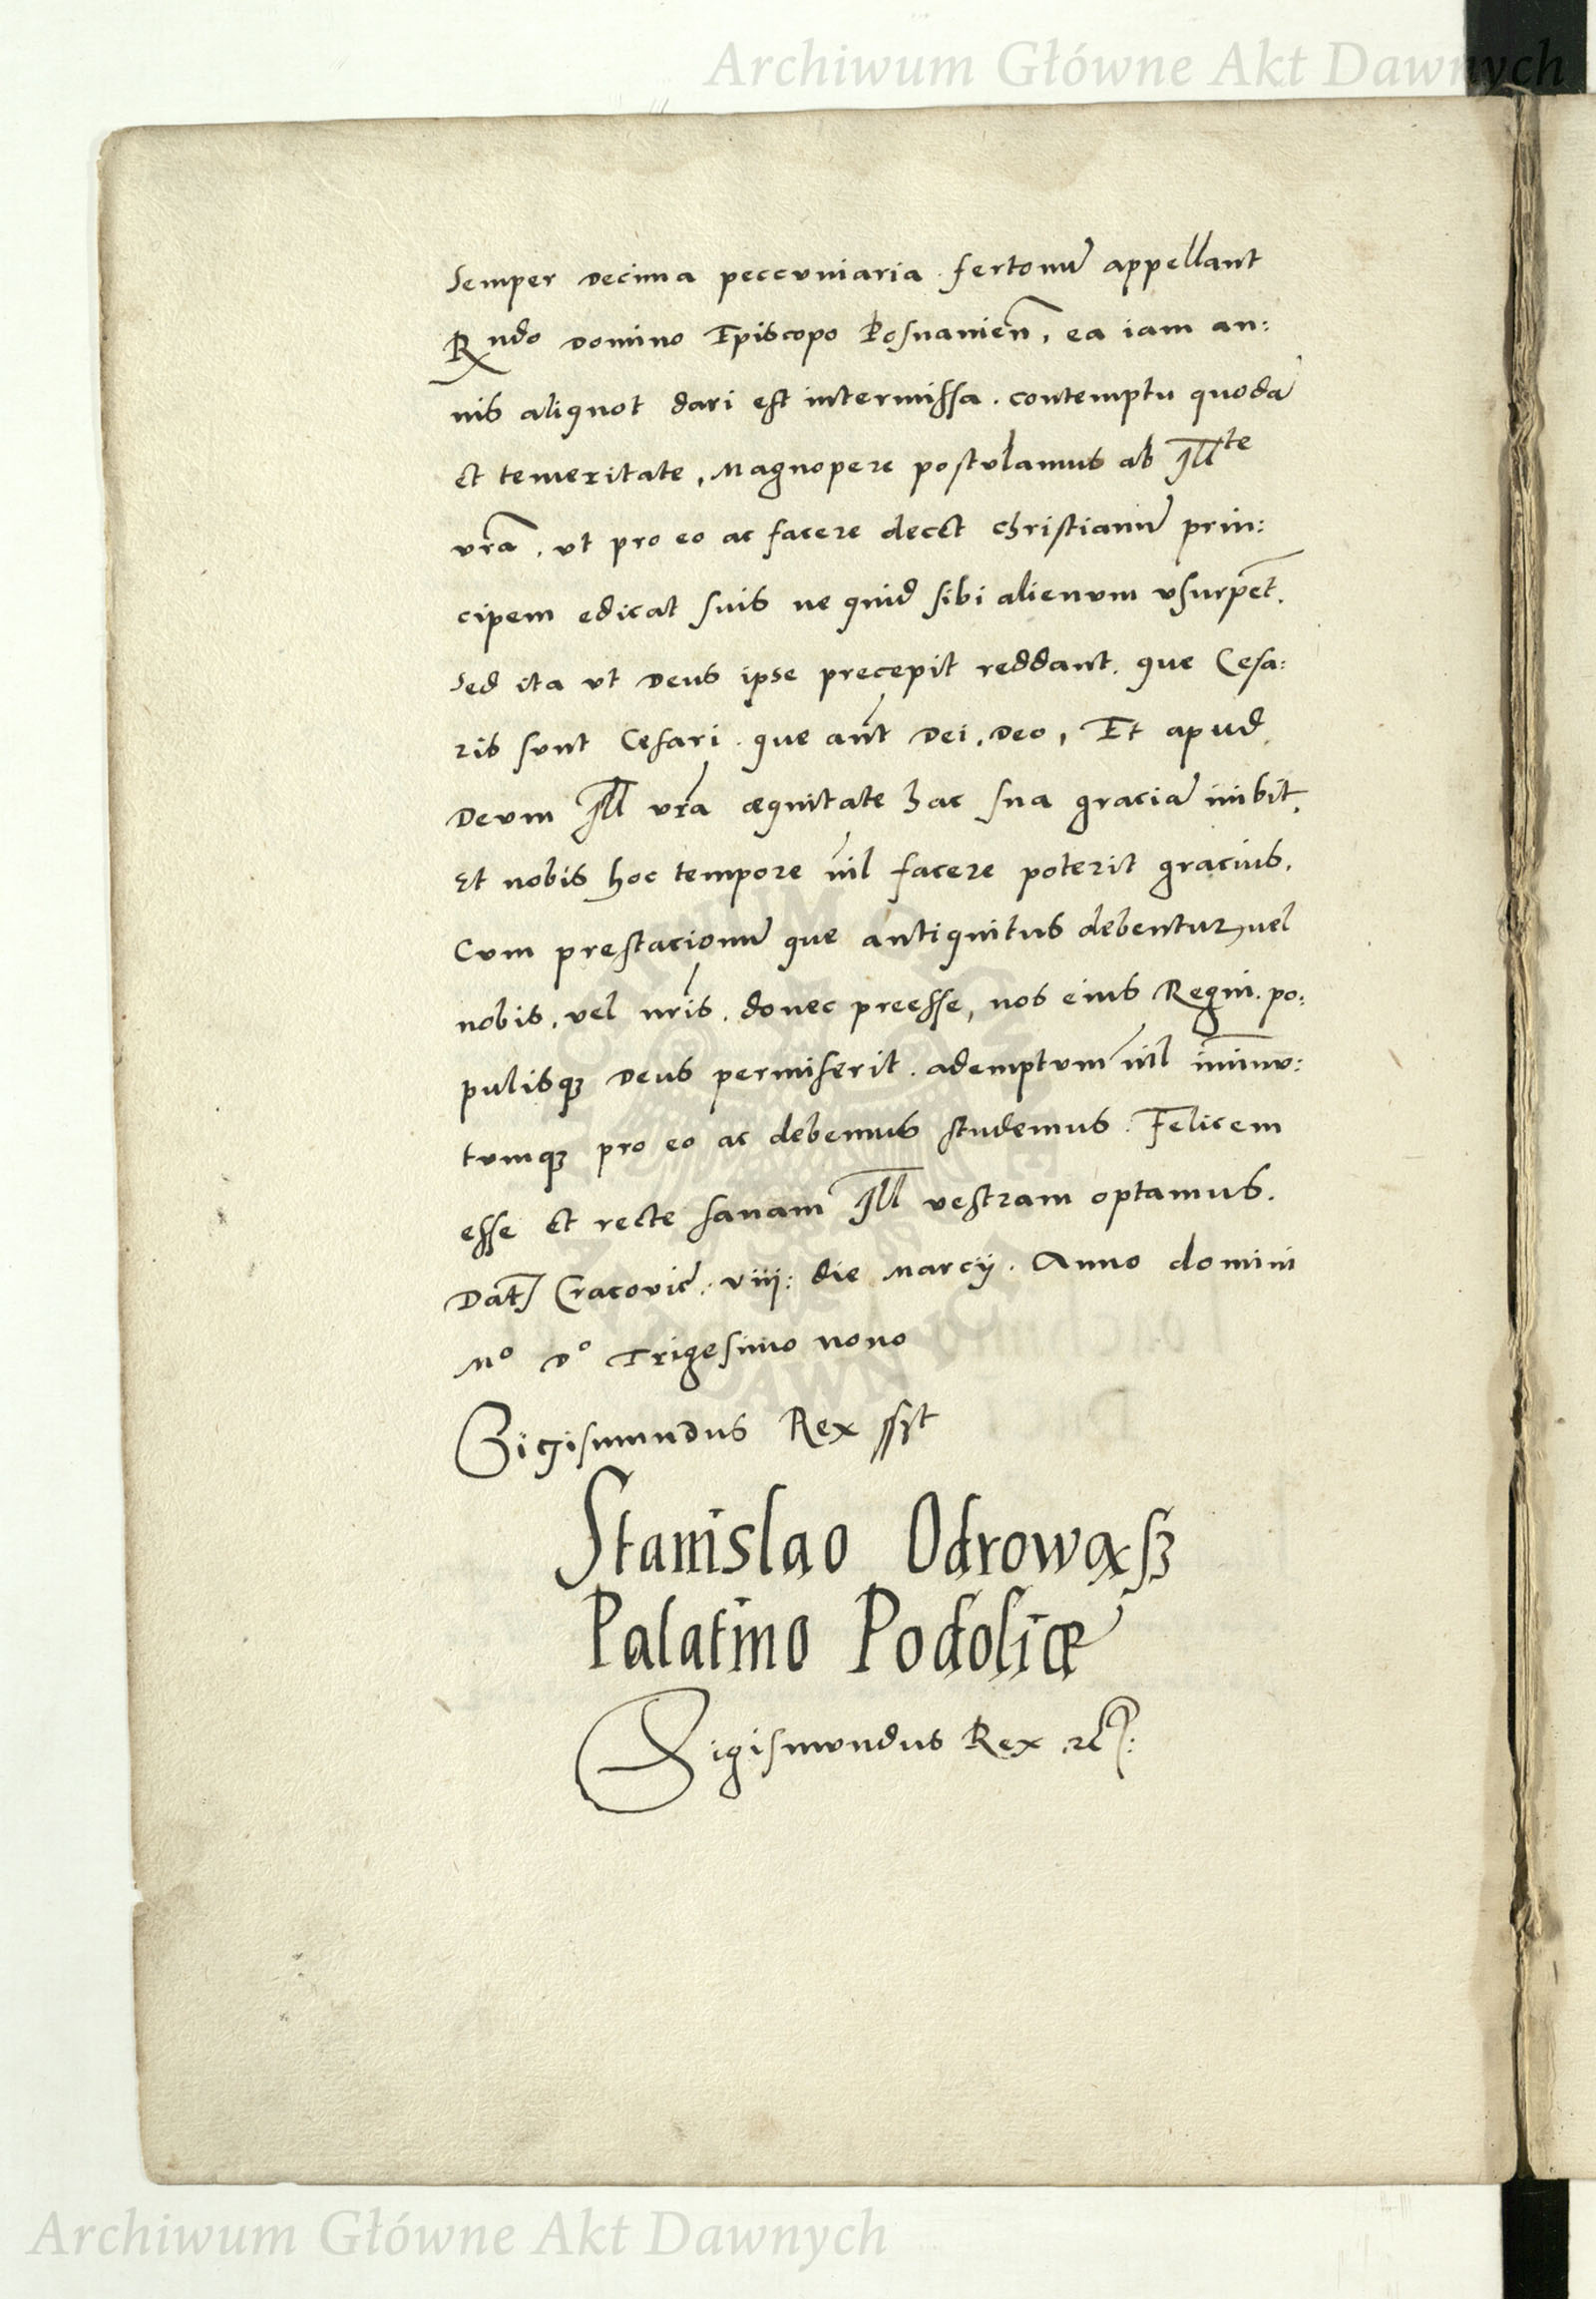 Archiwum Główne Akt Dawnych
Semper decima peccuniaria. fertonũ appellant
Rndo domino Episcopo Posnanieñ, ea iam an:
nis aliquot dari est intermissa. contemptu quodã
et temeritate, Magnopere postulamus ab Illte
vrã. ut pro eo ac facere decet christianũ prin:
cipem edicat suis ne quid sibi alienum usurpet̃.
Sed ita ut Deus ipse precepit reddant. que Cesa:
ris sunt Cesari. que aũt Dei, Deo, Et apud
Deum Ill vrã æquitate hac sua graciã inibit,
Et nobis hoc tempore nil facere poterit gracius.
Cum prestacionũ que antiquitus debentur, vel
nobis, vel nris. donec preesse, nos eius Regni. po:
pulisqꝫ Deus permiserit. ademptum nil im̃inu:
tumqꝫ pro eo ac debemus studemus. Felicem
esse et recte sanam Ill vestram optamus.
Dat Cracovie. viij: die Marcij. Anno domini
Mº Dº Trigesimo nono
Sigismundus Rex sst
Stanislao Odrowąsz
Palatino Podoliæ
Sigismundus Rex
Archiwum Główne Akt Dawnych